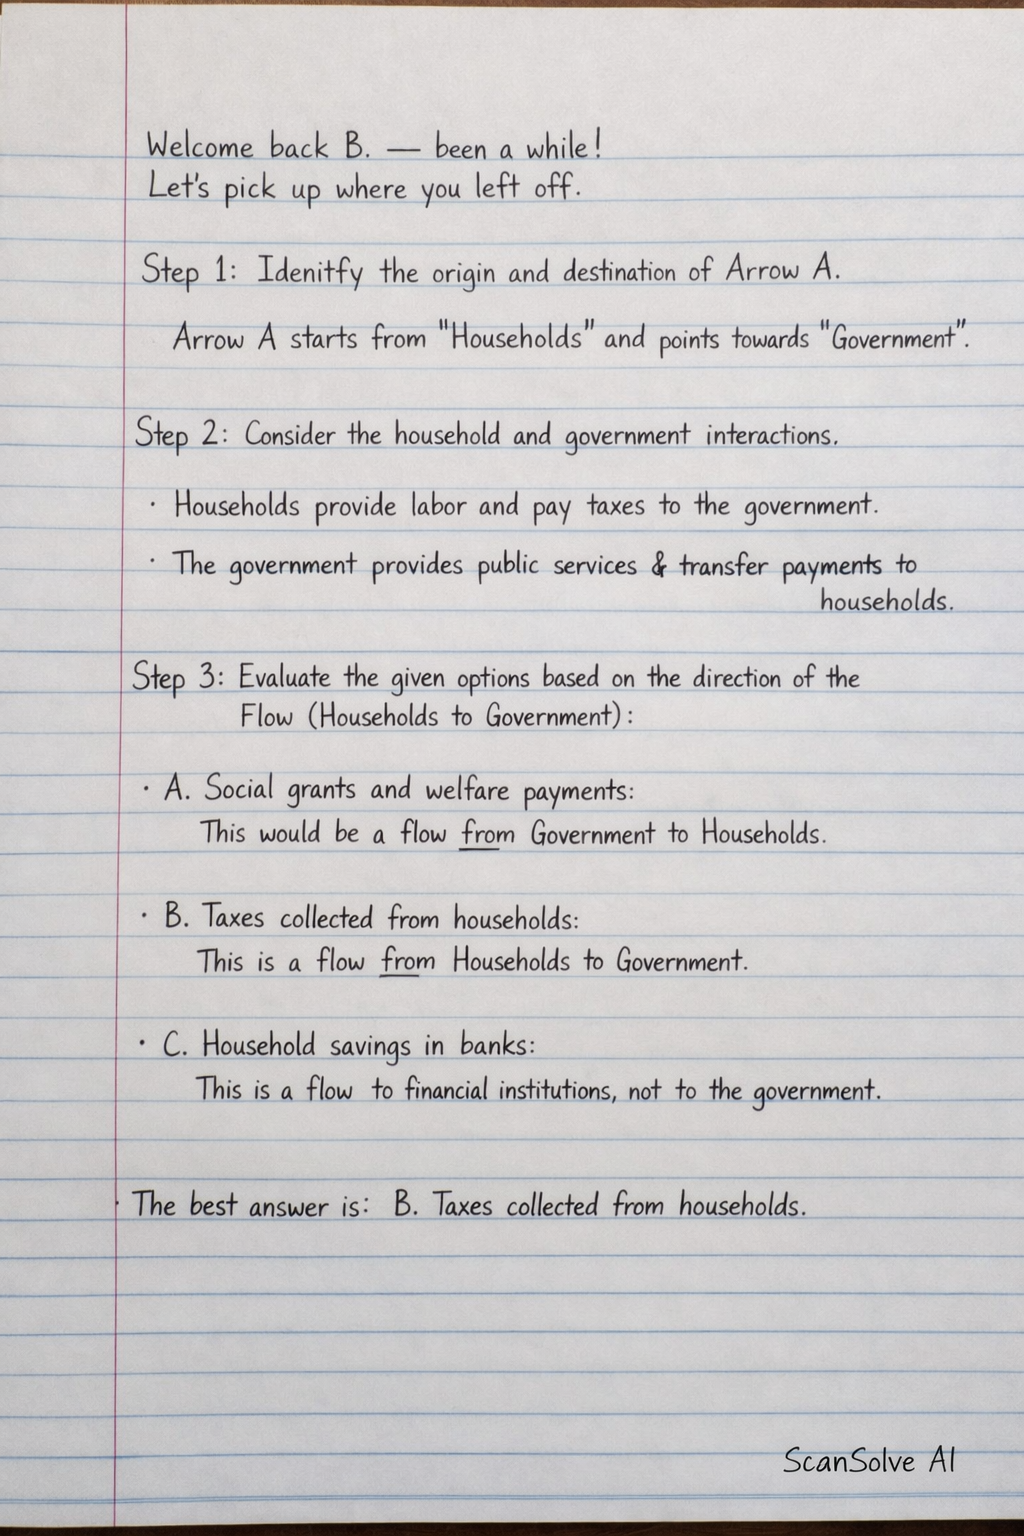 Welcome back B. — been a while!
Let's pick up where you left off.
Step 1: Idenitfy the origin and destination of Arrow A.
Arrow A starts from "Households" and points towards "Government".
Step 2: Consider the household and government interactions.
· Households provide labor and pay taxes to the government.
· The government provides public services & transfer payments to
households.
Step 3: Evaluate the given options based on the direction of the
Flow (Households to Government):
· A. Social grants and welfare payments:
This would be a flow from Government to Households.
· B. Taxes collected from households:
This is a flow from Households to Government.
· C. Household savings in banks:
This is a flow to financial institutions, not to the government.
· The best answer is: B. Taxes collected from households.
ScanSolve AI